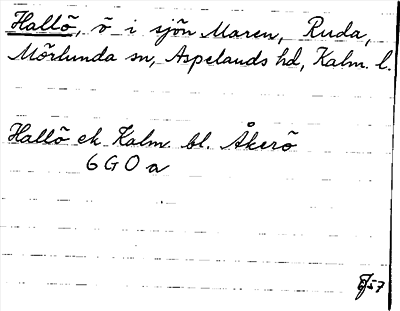 Hallö, ö i sjön Maren, Ruda,
Mörlunda sn, Aspelands hd, Kalm. l.
Hallö ek Kalm. bl. Åkerö
6 G 0 a
57